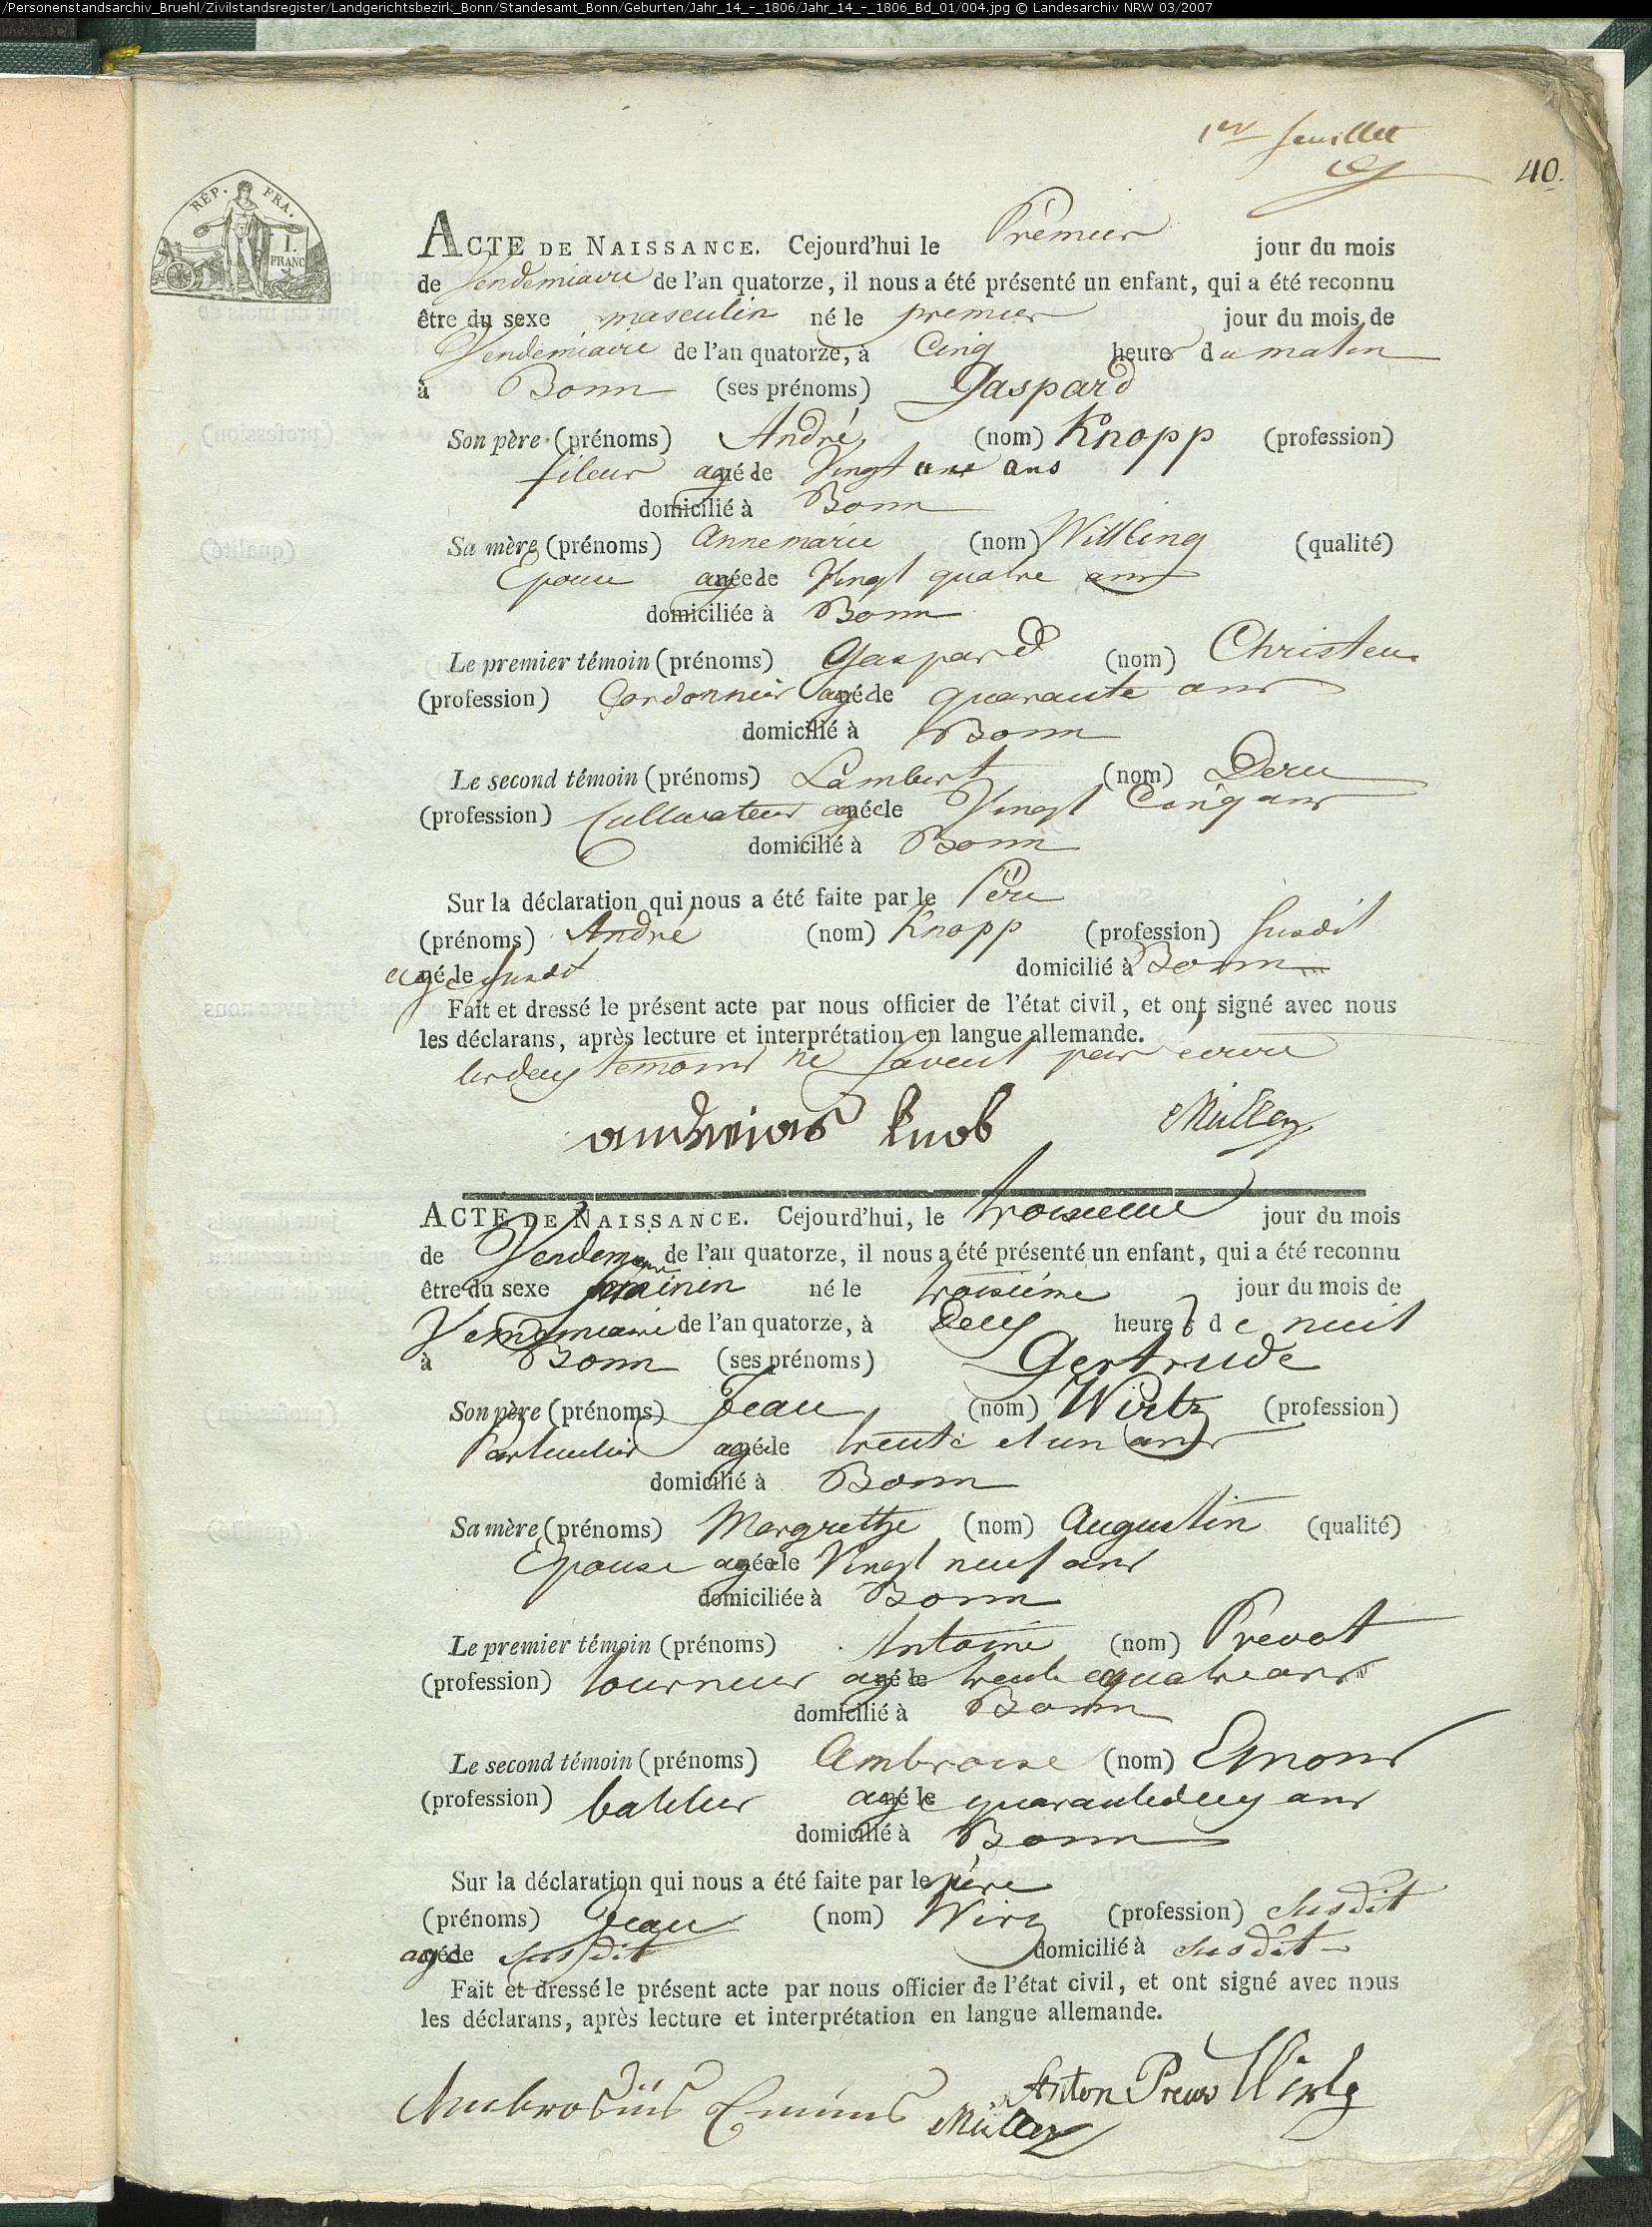 /Personenstandsarchiv_Bruehl/Zivilstandsregister/Landgerichtsbezirk_Bonn/Standesamt_Bonn/Geburten/Jahr_14_-_1806/Jahr_14_-_1806_Bd_01/004.jpg © Landesarchiv NRW 03/2007
1er feuillet
40.
RÉP. FRA.
1. FRANC
ACTE DE NAISSANCE. Cejourd'hui le Premier jour du mois
de Vendemiaire de l'an quatorze, il nous a été présenté un enfant, qui a été reconnu
être du sexe masculin né le premier jour du mois de
Vendemiaire de l'an quatorze, à Cinq heures du matin
à Bonn (ses prénoms) Gaspard
Son père (prénoms) André (nom) Knopp (profession)
fileur agé de Vingt une ans
domicilié à Bonn
Sa mère (prénoms) Annemarie (nom) (qualité)
Epouse agée de Vingt quatre ans
domiciliée à Bonn
Le premier témoin (prénoms) Gaspard (nom) Christen
(profession) Cordonnier agé de quarante ans
domicilié à Bonn
Le second témoin (prénoms) Lambert (nom)
(profession) Cultivateur agé de Vingt Cinq ans
domicilié à Bonn
Sur la déclaration qui nous a été faite par le Père
(prénoms) André (nom) Knopp (profession) Susdit
agé susdit domicilié à Bonn
Fait et dressé le présent acte par nous officier de l'état civil, et ont signé avec nous
les déclarans, après lecture et interprétation en langue allemande.
les deux temoins ne savent pas ecrire
andreias knob Müller
ACTE DE NAISSANCE. Cejourd'hui, le troisieme jour du mois
de Vendemiaire de l'an quatorze, il nous a été présenté un enfant, qui a été reconnu
être du sexe feminin né le troisième jour du mois de
Vendemiaire de l'an quatorze, à Deux heures de nuit
à Bonn (ses prénoms) Gertrude
Son père (prénoms) Jean (nom) Wirtz (profession)
Particulier agé de trente et un ans
domicilié à Bonn
Sa mère (prénoms) Margrethe (nom) Augustin (qualité)
Epouse agée de Vingt neuf ans
domiciliée à Bonn
Le premier témoin (prénoms) Antoine (nom) Prevot
(profession) tourneur agé de trente quatre ans
domicilié à Bonn
Le second témoin (prénoms) Ambroise (nom) Emons
(profession) batelier agé de quarante deux ans
domicilié à Bonn
Sur la déclaration qui nous a été faite par le père
(prénoms) Jean (nom) Wirz (profession) Susdit
agé de susdit domicilié à susdit
Fait et dressé le présent acte par nous officier de l'état civil, et ont signé avec nous
les déclarans, après lecture et interprétation en langue allemande.
Anton Preus Wirtz
Ambrosius Emuns Müller